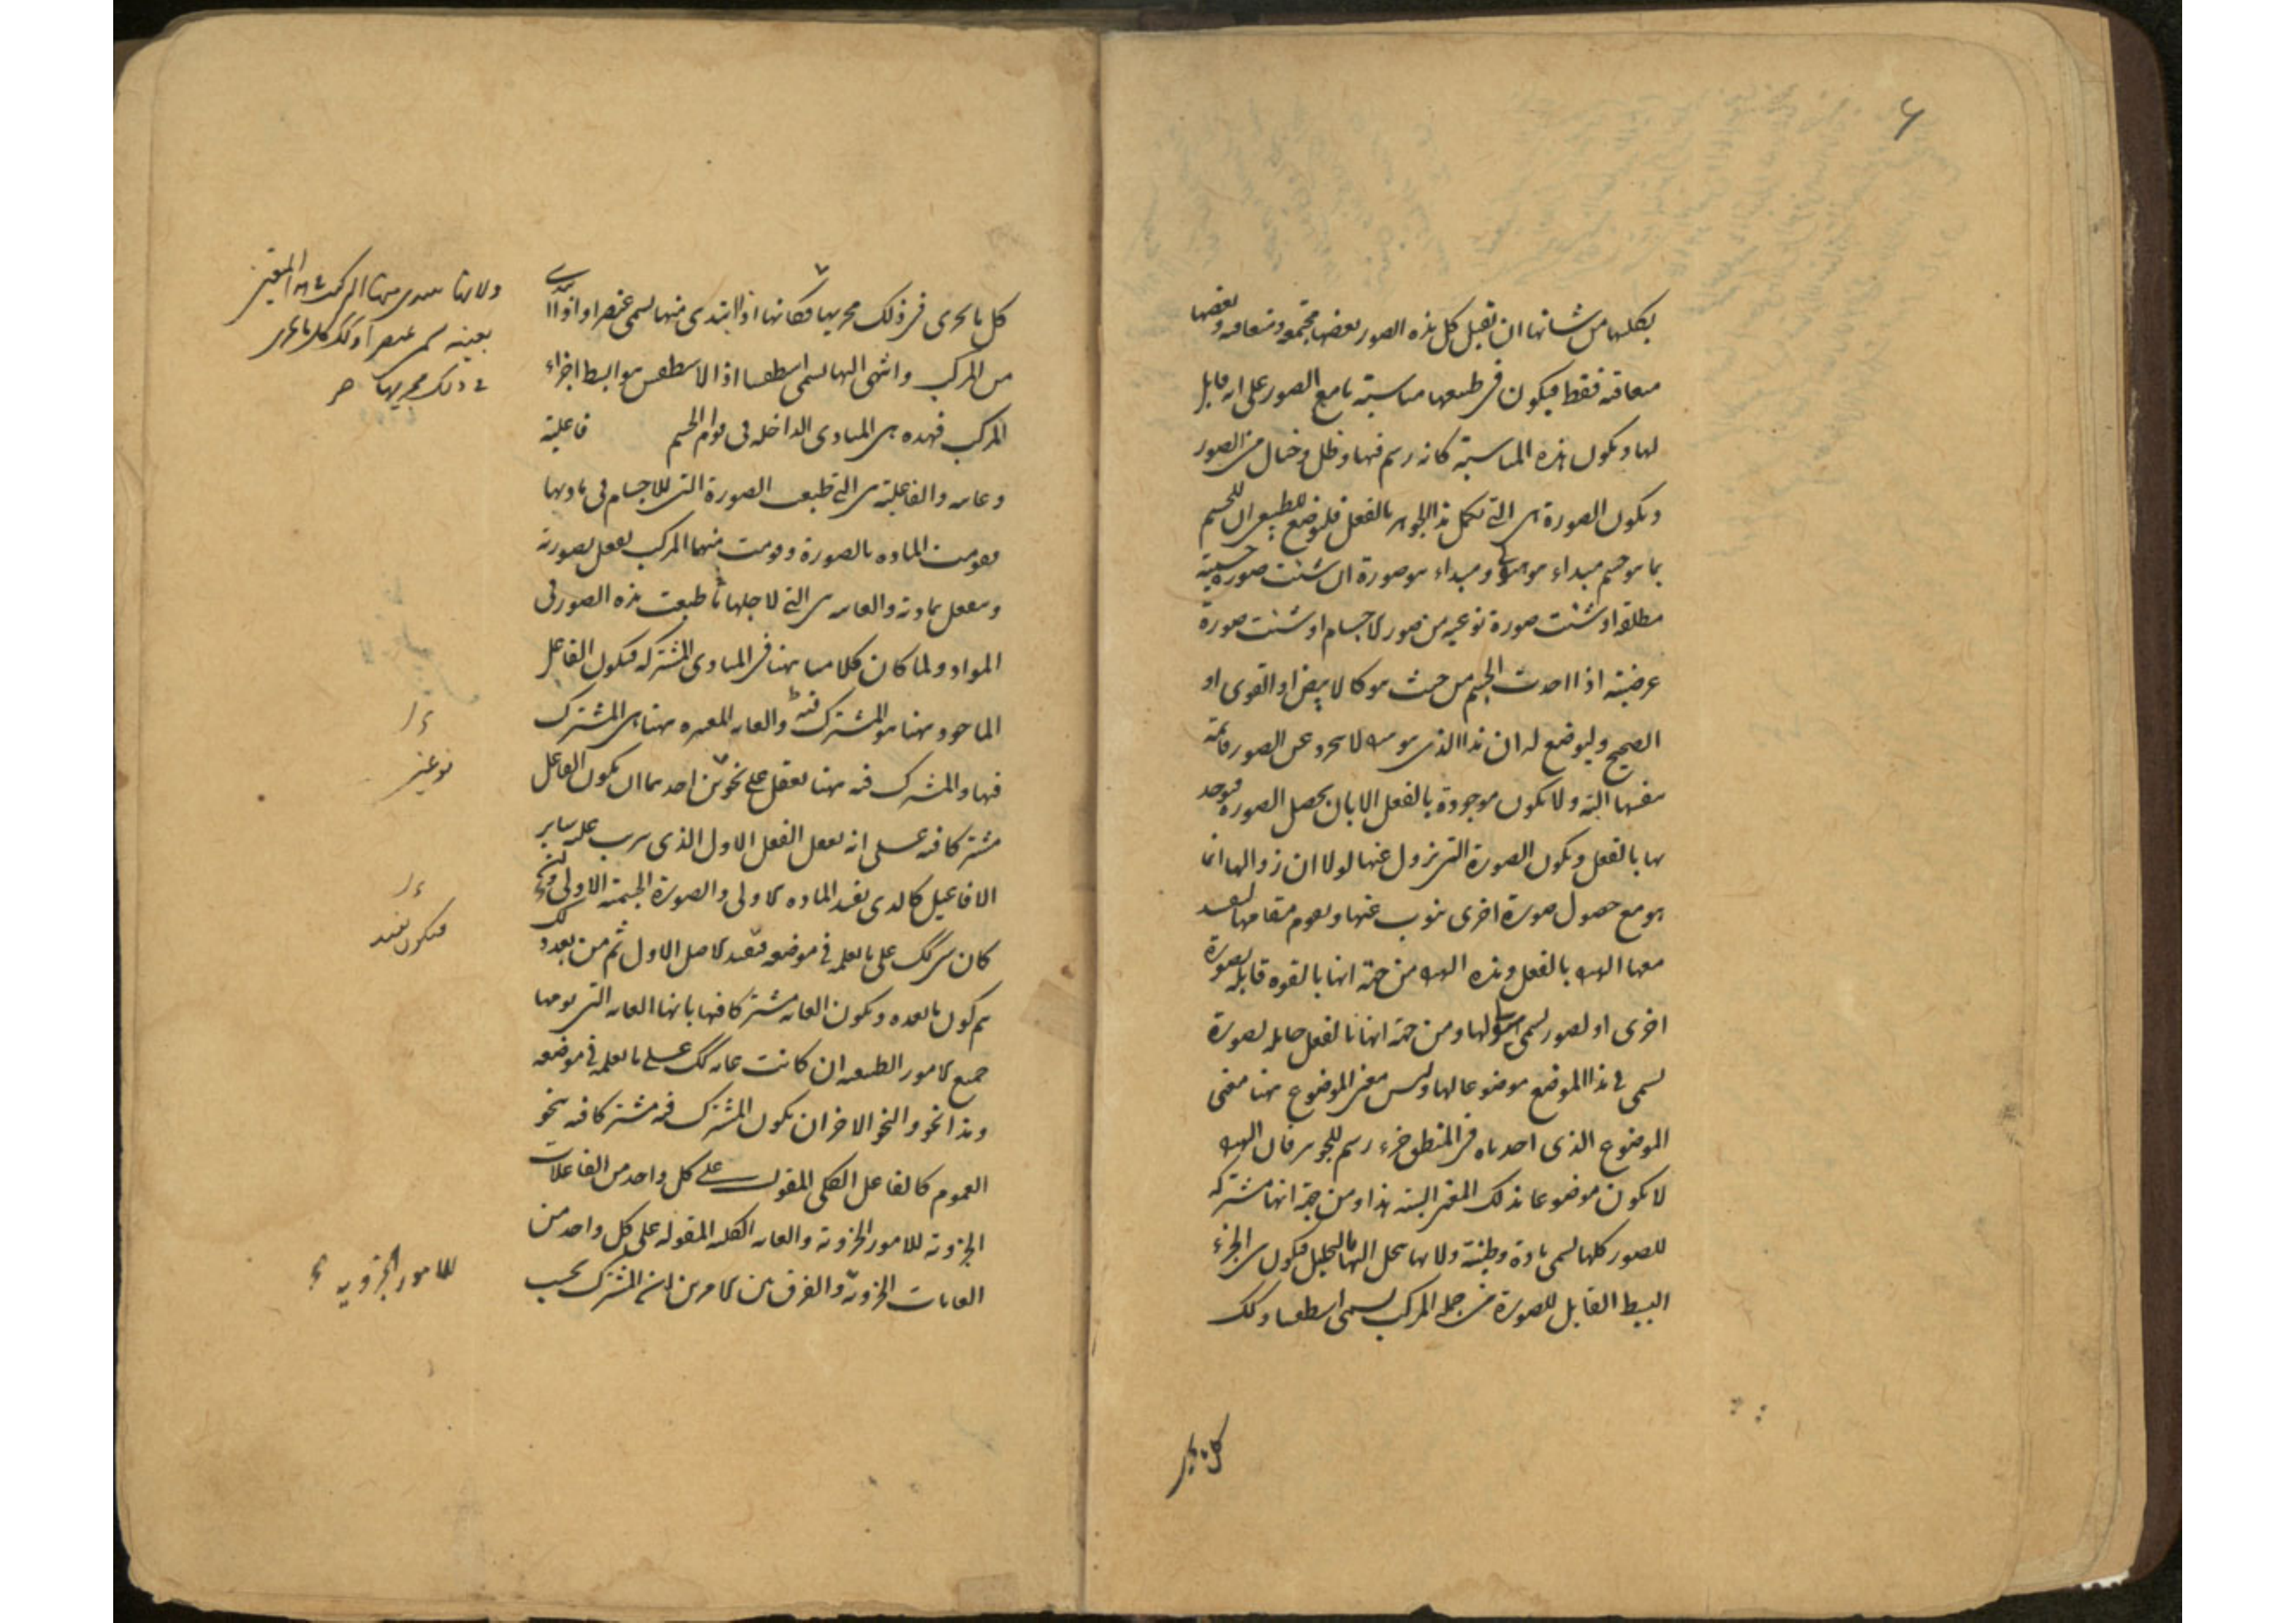 ۶
بكليها من شانها ان تقبل كل هذه الصور بعضها مجتمعة و متعاقبة و بعضها
متعاقبة فقط فيكون فى طبيعتها مناسبة ما مع الصور على انه قابل
لها و يكون هذه المناسبة كانه رسم فيها و ظل و خيال من الصور
و يكون الصورة هى التى تكمل هذا الجوهر بالفعل فليوضع للطبيعى ان للجسم
بما هو جسم مبداء هو هيولى و مبداء هو صورة ان شئت صورة جسمية
مطلقة او شئت صورة نوعية من صور الاجسام او شئت صورة
عرضية اذا اخذت الجسم من حيث هو كالابيض او القوى او
الصحيح و ليوضع له ان هذا الذى هو هيولى لا يتجرد عن الصور قائمة
بنفسها البتة و لا يكون موجودة بالفعل الا بان يحصل الصورة فيوجد
بها بالفعل و يكون الصورة التى تزول عنها لولا ان زوالها انما
هو مع حصول صورة اخرى ينوب عنها و يقوم مقامها لفسد
معها الهيولى بالفعل و هذه الهيولى من جهة انها بالقوه قابلة لصورة
اخرى او لصور يسمى هيولى لها و من جهة انها بالفعل حاملة لصورة
يسمى فى هذا الموضع موضوعا لها و ليس معنى الموضوع هنا معنى
الموضوع الذى اخذناه فى المنطق جزء رسم الجوهر فان الهيولى
لا يكون موضوعا بذلك المعنى البتة هذا و من جهة انها مشتركة
للصور كلها يسمى مادة و طينة و لانها ينحل اليها بالتحليل فيكون هى الجزء
البسيط القابل للصورة من جملة المركب يسمى اسطقسا و كذلك
كل ما يجرى
كل ما يجرى فى ذلك مجريها فكانها اذا ابتدى منها يسمى عنصرا و اذا ابتدى
من المركب و انتهى اليها يسمى اسطقسا اذ الاسطقس هو ابسط اجزاء
المركب فهذه هى المبادى الداخلة فى قوام الجسم فاعلية
و غاية و الفاعلية هى التى طبعت الصورة التى للاجسام فى مادتها
فقومت المادة بالصورة و قومت منهما المركب يفعل بصورته
و ينفعل بمادته و الغاية هى التى لاجلها ما طبعت هذه الصور فى
المواد و لما كان كلامنا ههنا فى المبادى المشتركة فيكون الفاعل
الماخوذ ههنا هو المشترك فيه و الغاية المعتبرة ههنا هى المشترك
فيها و المشترك فيه ههنا يعقل على نحوين احدهما ان يكون الفاعل
مشتركا فيه على انه يفعل الفعل الاول الذى يترتب عليه ساير
الافاعيل كالذى يفيد المادة الاولى و الصورة الجسمية الاولى ان
كان شى كذلك على ما تعلمه فى موضعه فيفيد الاصل الاول ثم من بعد ذلك
يتم كون ما بعده و يكون الغاية مشتركا فيها بانها الغاية التى يؤمها
جميع الامور الطبيعية ان كانت غاية كذلك على ما تعلمه فى موضعه
و هذا نحو و النحو الاخر ان يكون المشترك فيه مشتركا فيه بنحو
العموم كالفاعل الكلى المقول على كل واحد من الفاعلات
الجزوية للامور الجزوية و الغاية الكلية المقولة على كل واحد من
الغايات الجزوية و الفرق بين الامرين ان المشترك بحسب
بعينه يسمى عنصرا و كذلك كل ما يجرى
فى ذلك مجريها
نوعين
فيكون يفيد
للامور الجزوية